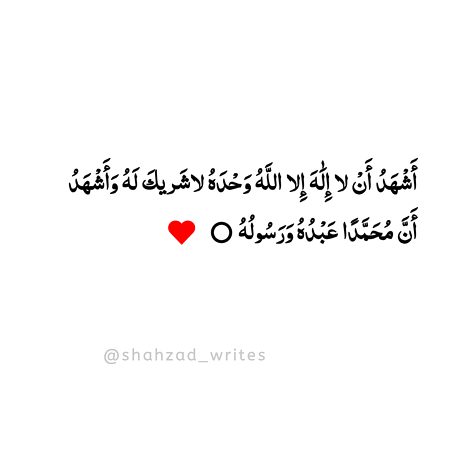 أَشْهَدُ أَنْ لا إِلٰهَ إِلا اللَّهُ وَحْدَهُ لاشَريكَ لَهُ وَأَشْهَدُ
أَنَّ مُحَمَّدًا عَبْدُهُ وَرَسُولُهُ
@shahzad_writes